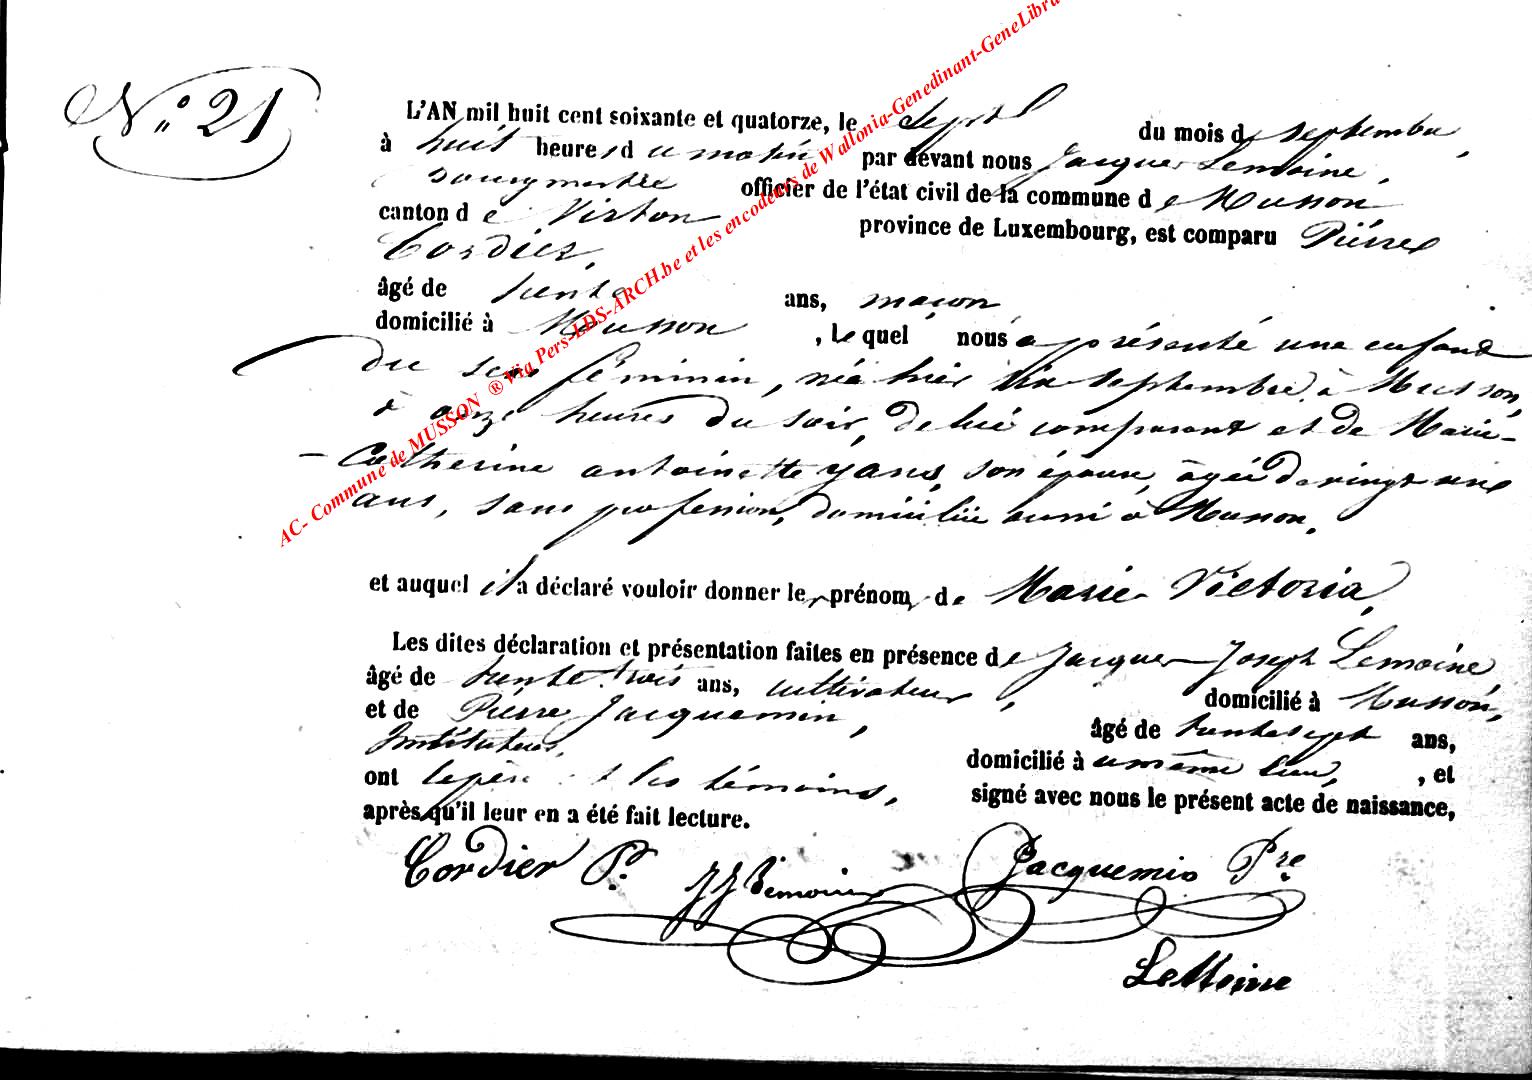 N.° 21
L'AN mil huit cent soixante et quatorze, le Sept du mois de septembre,
à huit heures du matin par devant nous Jacques Lemoine,
Bourgmestre officier de l'état civil de la commune de Musson
canton de Virton province de Luxembourg, est comparu Pierre
Cordier,
âgé de trente ans, maçon,
domicilié à Musson, lequel nous a présenté une enfant
du sexe féminin, née hier six septembre, à Musson,
à onze heures du soir, de lui comparant et de Marie-
Catherine antoinette yans, son épouse, âgée de vingt six
ans, sans profession, domiciliée aussi à Musson,
et auquel il a déclaré vouloir donner les prénoms de Marie Victoria,
Les dites déclaration et présentation faites en présence de Jacques-Joseph Lemoine,
âgé de trente trois ans, cultivateur, domicilié à Musson,
et de Pierre Jacquemin, âgé de trente sept ans,
Instituteur, domicilié au même lieu, , et
ont le père et les témoins, signé avec nous le présent acte de naissance,
après qu'il leur en a été fait lecture.
Cordier P. JJ Lemoine Jacquemin Pre
LeMoine
AC- Commune de MUSSON ® Via Pers-LDS-ARCH.be et les encodeurs de Wallonia-Genedinant-GeneLibra